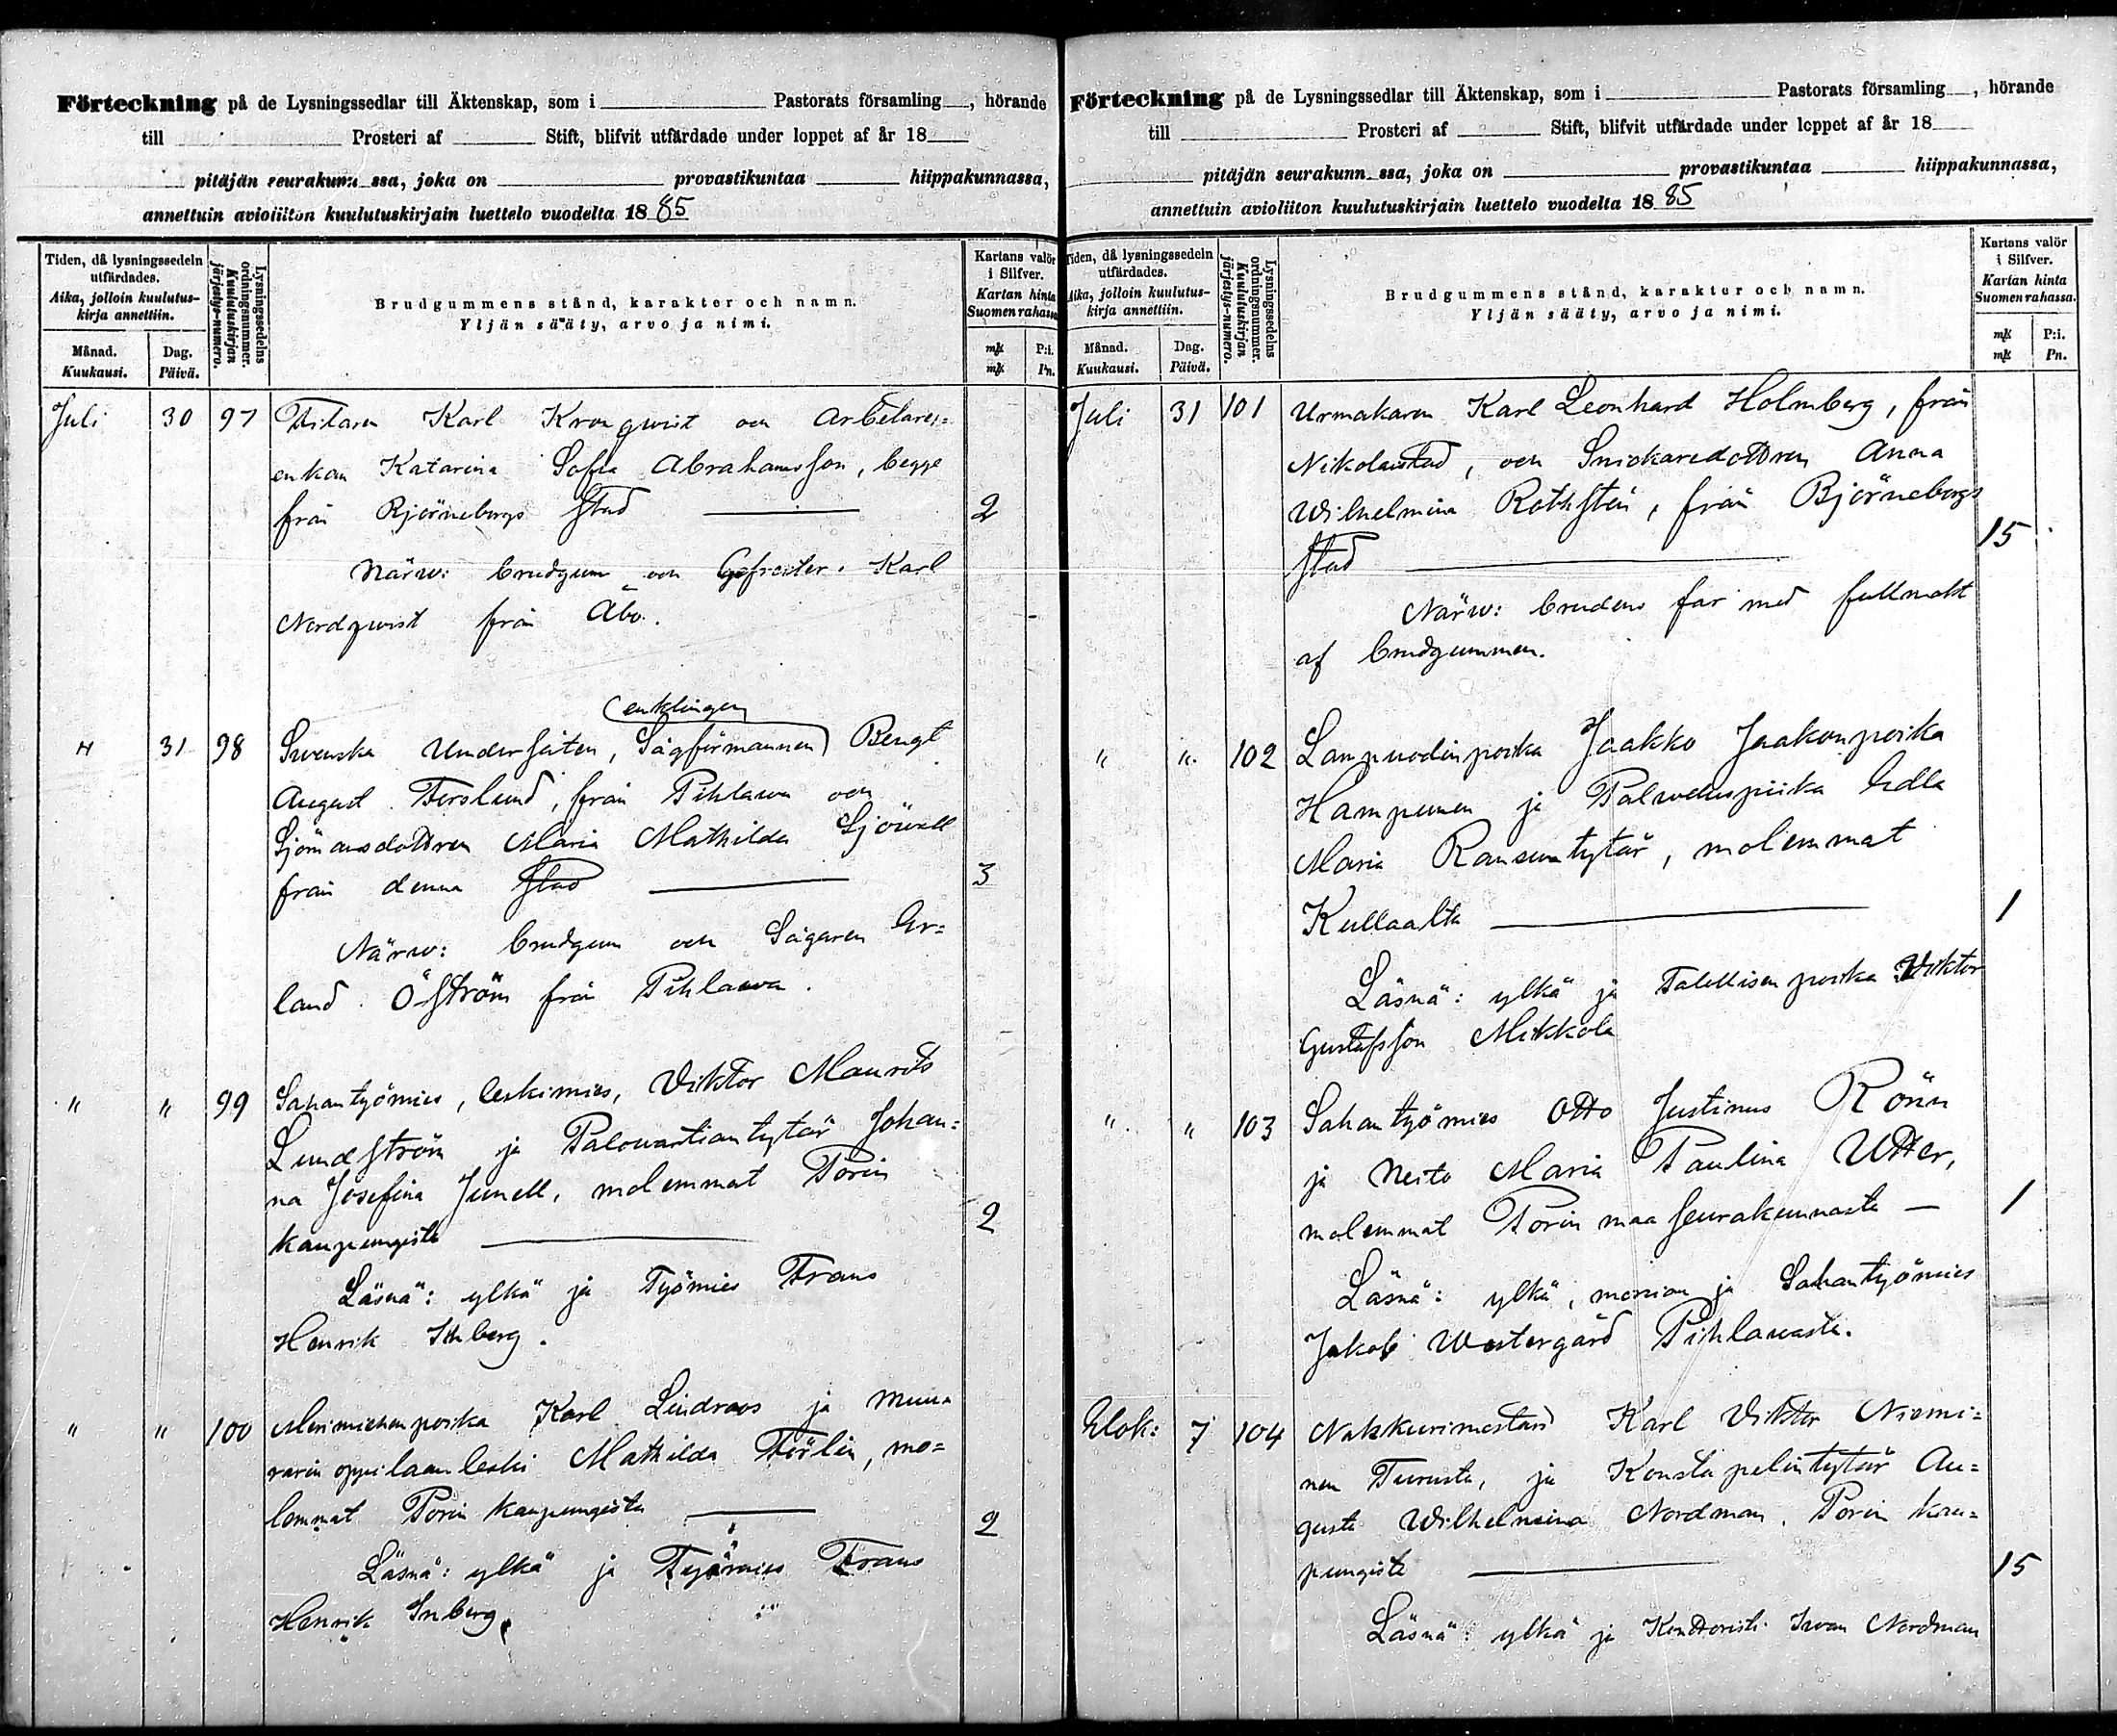 Förteckning på de Lysningssedlar till Äktenskap, som i Pastorats församling , hörande
till Prosteri af Stift, blifvit utfärdade under loppet af år 18
pitäjän seurakunn ssa, joka on provastikuntaa hiippakunnassa,
annettuin avioliiton kuulutuskirjain luettelo vuodelta 1885
Tiden, då lysningssedeln
utfärdades.
Aika, jolloin kuulutus-
kirja annettiin.
Månad.
Kuukausi.
Dag.
Päivä.
Lysningssedelns
ordningsnummer.
Kuulutuskirjan
järjestys-numero.
Brudgummens stånd, karakter och namn.
Yljän sääty, arvo ja nimi.
Kartans valör
i Silfver.
Kartan hinta
Suomen rahassa
mk P:i.
mk Pn.
Juli 30 97 Filaren Karl Kronqvist och Arbetares=
enkan Katarina Sofia Abrahamsson, begge
från Björneborgs stad 2
Närw: brudgum och Gefreiter Karl
Nordqvist från Åbo.
(enklingen)
" 31 98 Swenska Undersåten, Sågförmannen Bengt
August Forslund, från Pihlawa och
Sjömansdottren Maria Mathilda Sjöwall
från denna stad 3
Närw: brudgum och Sågaren Er=
land Öström från Pihlawa.
" " 99 Sahantyömies, leskimies, Viktor Maurits
Lundström ja Palowartiantytär Johan=
na Josefina Junell, molemmat Porin
kaupungista 2
Läsnä: ylkä ja Työmies Frans
Henrik Inberg.
" " 100 Merimiehenpoika Karl Lindroos ja muu=
rarin oppilaan leski Mathilda Förlin, mo=
lemmat Porin kaupungista 2
Läsnä: ylkä ja Työmies Frans
Henrik Inberg.
Förteckning på de Lysningssedlar till Äktenskap, som i Pastorats församling , hörande
till Prosteri af Stift, blifvit utfärdade under loppet af år 18
pitäjän seurakunn ssa, joka on provastikuntaa hiippakunnassa,
annettuin avioliiton kuulutuskirjain luettelo vuodelta 1885
Tiden, då lysningssedeln
utfärdades.
Aika, jolloin kuulutus-
kirja annettiin.
Månad.
Kuukausi.
Dag.
Päivä.
Lysningssedelns
ordningsnummer.
Kuulutuskirjan
järjestys-numero.
Brudgummens stånd, karakter och namn.
Yljän sääty, arvo ja nimi.
Kartans valör
i Silfver.
Kartan hinta
Suomen rahassa.
mk P:i.
mk Pn.
Juli 31 101 Urmakaren Karl Leonhard Holmberg, från
Nikolaistad, och Snickaredottren Anna
Wilhelmina Rothstén, från Björneborgs
stad 15
Närw: brudens far med fullmakt
af brudgummen.
" " 102 Lampuodinpoika Jaakko Jaakonpoika
Hampunen ja Palweluspiika Edla
Maria Ransuntytär, molemmat
Kullaalta 1
Läsnä: ylkä ja Talollisen poika Viktor
Gustafsson Mikkola
" " 103 Sahantyömies Otto Justinus Rönn
ja Neito Maria Paulina Utter,
molemmat Porin maaseurakunnasta 1
Läsnä: ylkä, morsian ja Sahantyömies
Jakob Westergård Pihlawasta.
Elok: 7 104 Nahkurimestari Karl Viktor Niemi=
nen Turusta, ja Konstapelintytär Au=
gusta Wilhelmina Nordman, Porin kau=
pungista 15
Läsnä: ylkä ja Konttoristi Iwan Nordman